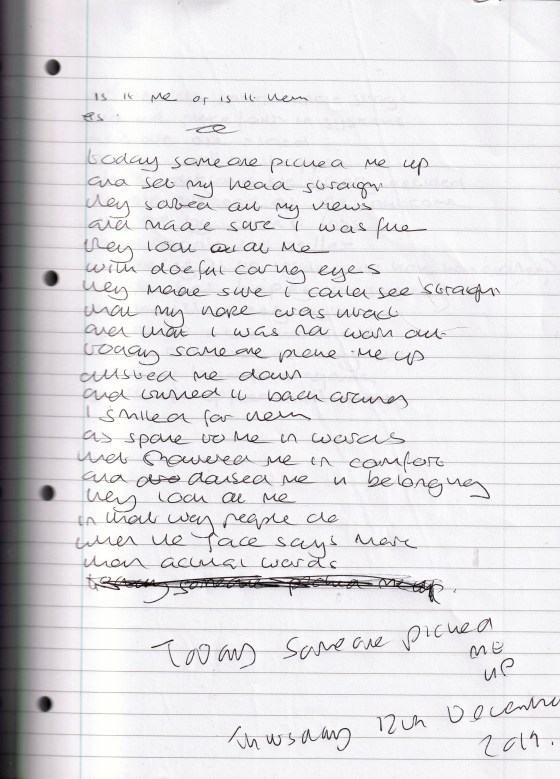 is it me or is it them
es.
today someone picked me up
and set my head straight
they sorted all my views
and made sure I was fine
they look at me
with doeful caring eyes
they made sure I could see straight
that my hope was intact
and that I was not worn out
today someone picked me up
dusted me down
and turned it back around
I smiled for them
as spoke to me in words
that showered me in comfort
and doused me in belonging
they look at me
in that way people do
when the face says more
than actual words
today someone picked me up.
Today someone picked
ME
UP
Thursday 12th December
2019.